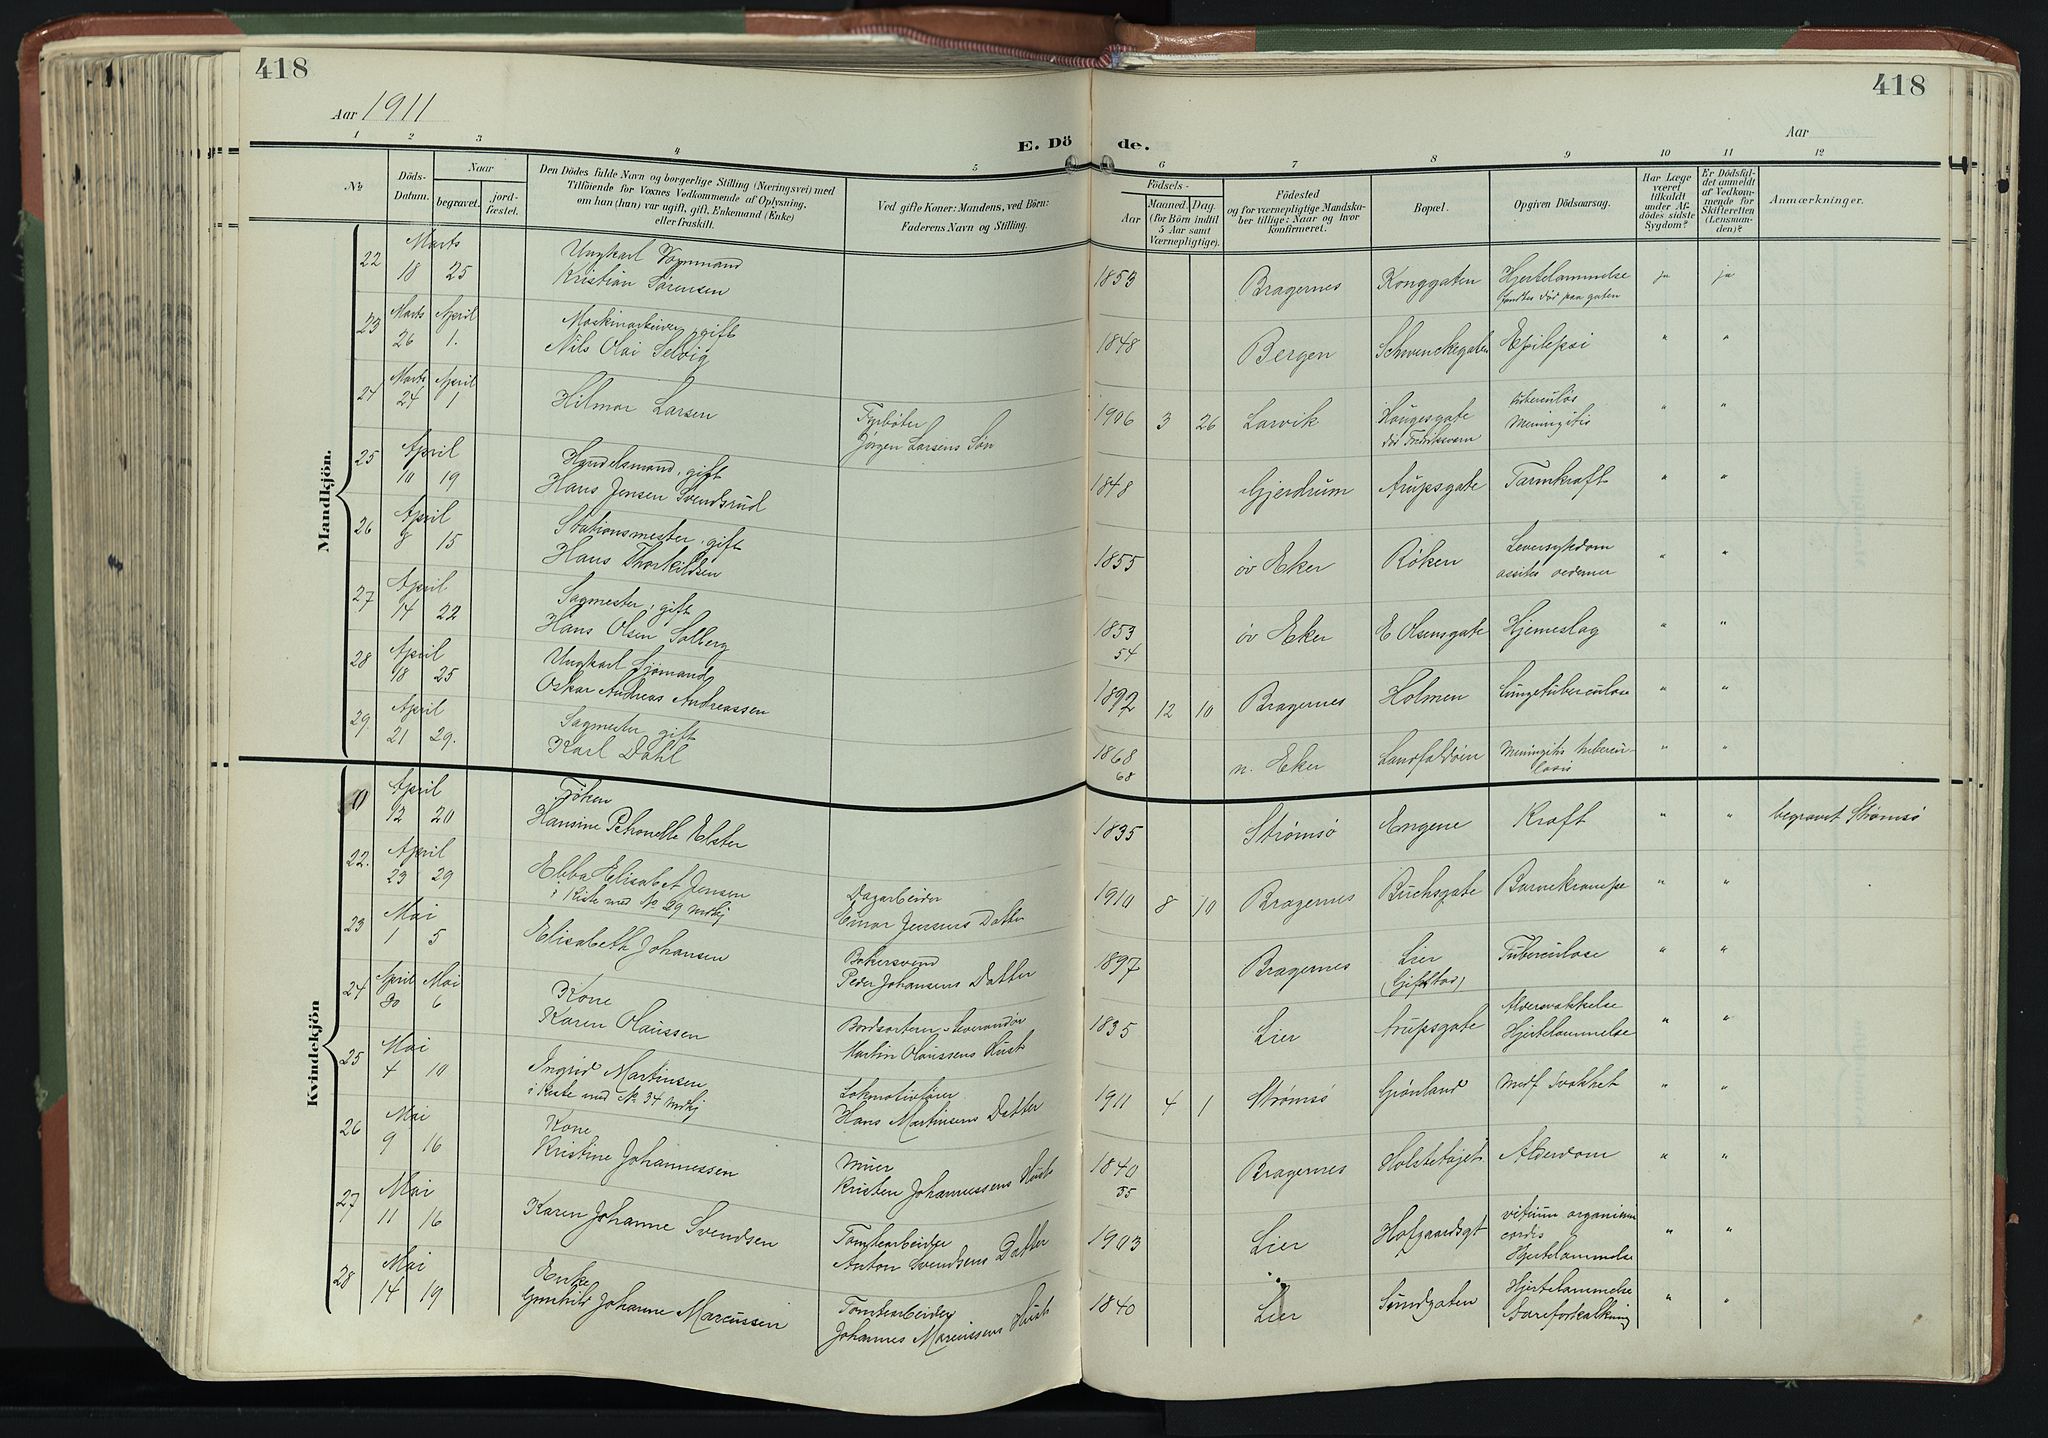 418
418
Aar 1911
Aar
E. Dö de.
1 2 3 4 5 6 7 8 9 10 11 12
№
Döds-Datum.
Naar
begravet.
jord-fæstet.
Den Dödes fulde Navn og borgerlige Stilling (Næringsvei) med
Tilföiende for Voxnes Vedkommende af Oplysning,
om han (hun) var ugift, gift, Enkemand (Enke)
eller fraskilt.
Ved gifte Koner: Mandens, ved Börn:
Faderens Navn og Stilling.
Födsels-
Aar
Maaned. Dag.
(for Börn indtil
5 Aar samt
Værnepligtige).
Födested
og for værnepligtige Mandska-
ber tillige: Naar og hvor
konfirmeret.
Bopæl.
Opgiven Dödsaarsag.
Har Læge
været
tilkaldt
under Af-
dödes sidste
Sygdom?
Er Dödsfal-
det anmeldt
af Vedkom-
mende for
Skifteretten
(Lensman-
den)?
Anmærkninger.
Mandkjön.
22 Marts 18 25 Ungkarl Vognmand
Kristian Sørensen 1853 Bragernes Konggaten Hjertelammelse ja ja
fandtes død paa gaten
23 Marts 26 April 1. Maskinarbeider, gift
Nils Olai Selvig 1848 Bergen Schwenckegaten Epilepsi " "
24 Marts 24 April 1 Hilmar Larsen Fyrbøter
Jørgen Larsens Søn 1906 3 26 Larvik Haugesgate
død Fredriksvern tuberculøs
Meningitis " "
25 April 10 19 Handelsmand, gift
Hans Jensen Svendsrud 1848 Gjerdrum Arupsgate Tarmkraft " "
26 April 8 15 Stationsmester, gift
Hans Thorkildsen 1855 øv Eker Røken Leversykdom " "
27 April 14 22 Sagmester, gift
Hans Olsen Solberg 1853
54 øv Eker E Olsensgate Hjerneslag " "
28 April 18 25 Ungkarl Sjømand
Oskar Andreas Andreassen 1892 12 10 Bragernes Holmen Lungetuberculose " "
29. April 21 29. Sagmester gift
Karl Dahl 1868
68 n. Eker Landfaldøien Meningitis tubercu-
losis " "
Kvindekjön
April 12 20 Frøken
Hansine Petronelle Elster 1835 Strømsø Engene Kraft " " begravet Strømsø
22. April 23 29 Ebba Elisabet Jensen
i Kiste med No 29 mdkj Dagarbeider
Einar Jensens Datter 1910 8 10 Bragernes Buchsgate Barnekrampe " "
23 Mai 1 5 Elisabeth Johansen Bakersvend
Peder Johansens Datter 1897 Bragernes Lier
(Gifstad) Tuberculose " "
24 April 30 Mai 6 Kone
Karen Olaussen Bordsorterer
Martin Olaussens Hust 1835 Lier Arupsgate Aldersvakkelse
Hjertelammelse " "
25 Mai 4 10 Ingrid Martinsen
i Kiste med No 34 mdkj Lokomotivfører
Hans Martinsens Datter 1911 4 1 Strømsø Grønland Medf Svakhet " "
26 Mai 9 16 Kone
Kristine Johannessen Murer
Kristen Johannessens Hust 1840
35 Bragernes Holstetøjet Alderdom " "
27 Mai 11 16 Karen Johanne Svendsen Tomtearbeider
Anton Svendsens Datter 1903 Lier Hofgaardsgt vitium organicum
cordis
Hjertelammelse " "
28 Mai 14 19 Enke
Gunhild Johanne Marcussen Tomtearbeider
Johannes Marcussens Hust 1840 Lier Sundgaten Hjertelammelse
Aareforkalkning " "